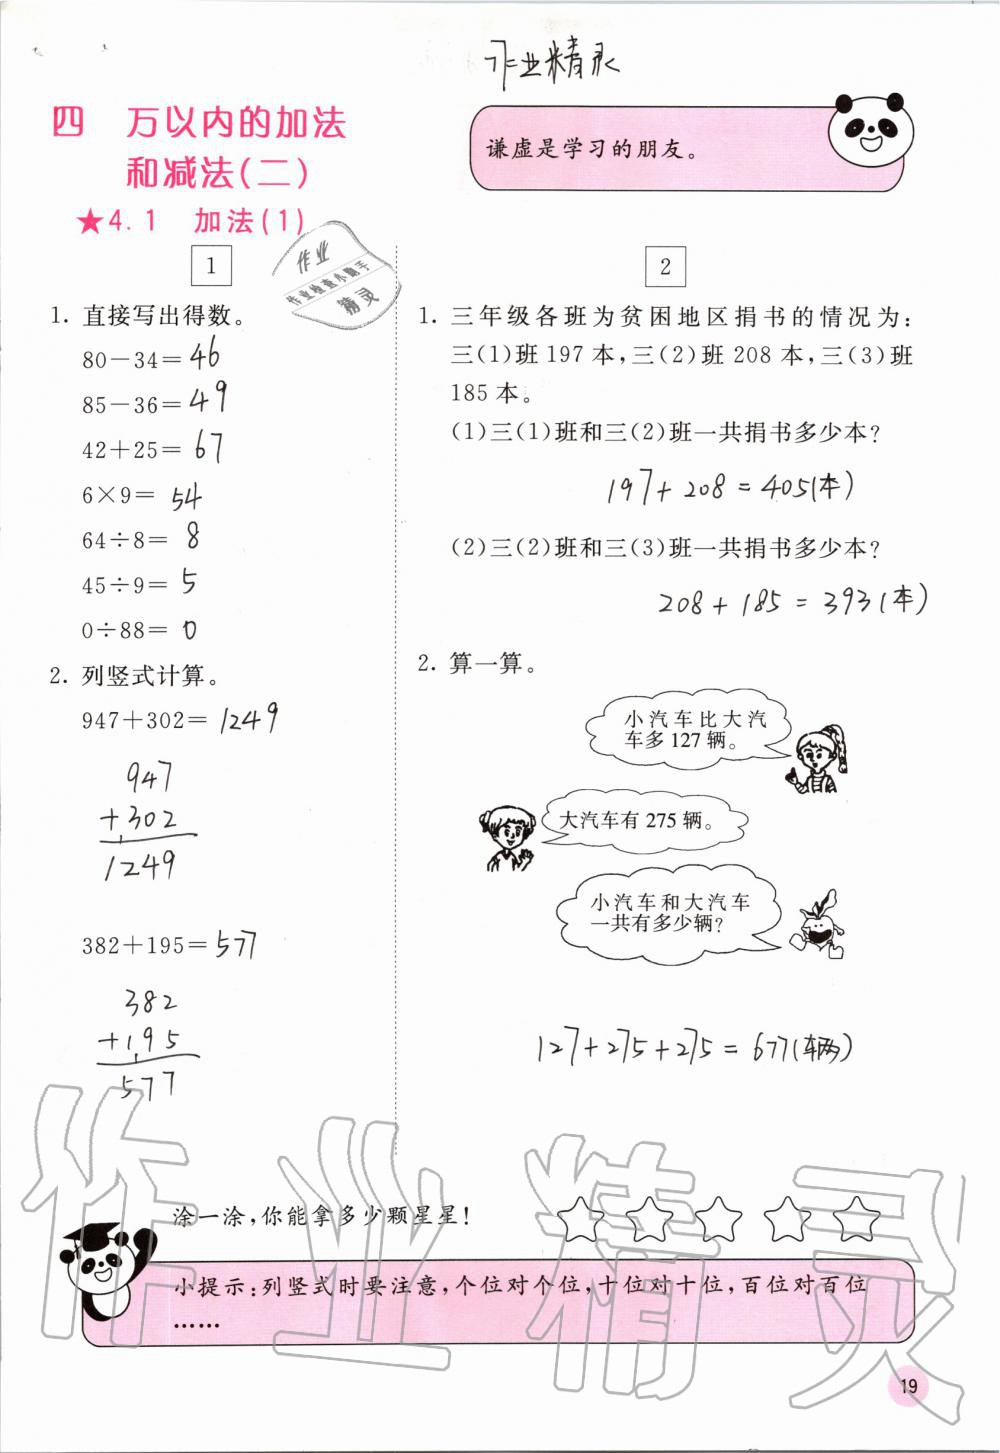 作业精灵
四 万以内的加法
和减法(二)
谦虚是学习的朋友。
★4.1 加法(1)
作业
作业检查小助手
精灵
1
1. 直接写出得数。
80-34=46
85-36=49
42+25=67
6×9=54
64÷8=8
45÷9=5
0÷88=0
2. 列竖式计算。
947+302=1249
947
+302
1249
382+195=577
382
+195
577
2
1. 三年级各班为贫困地区捐书的情况为:
三(1)班197本,三(2)班208本,三(3)班
185本。
(1)三(1)班和三(2)班一共捐书多少本?
197+208=405(本)
(2)三(2)班和三(3)班一共捐书多少本?
208+185=393(本)
2. 算一算。
小汽车比大汽
车多127辆。
大汽车有275辆。
小汽车和大汽车
一共有多少辆?
127+275+275=677(辆)
作业精灵
涂一涂,你能拿多少颗星星!
小提示:列竖式时要注意,个位对个位,十位对十位,百位对百位
……
19